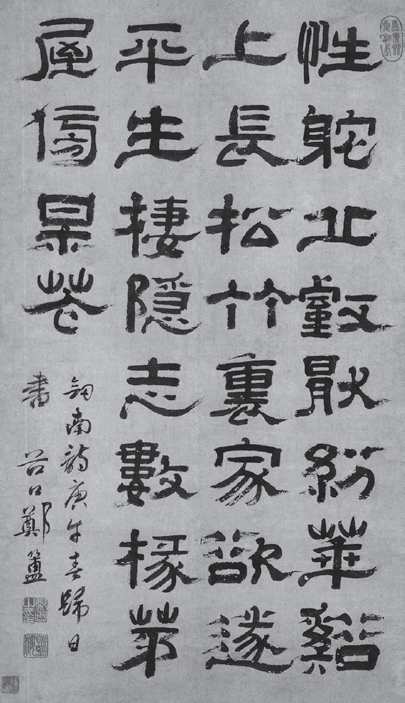 性躭丘壑厭紛華谿
上長松竹裏家欲遂
平生棲隱志數椽茅
屋傍某花
劒南詩庚午春歸日
書 谷口鄭簠